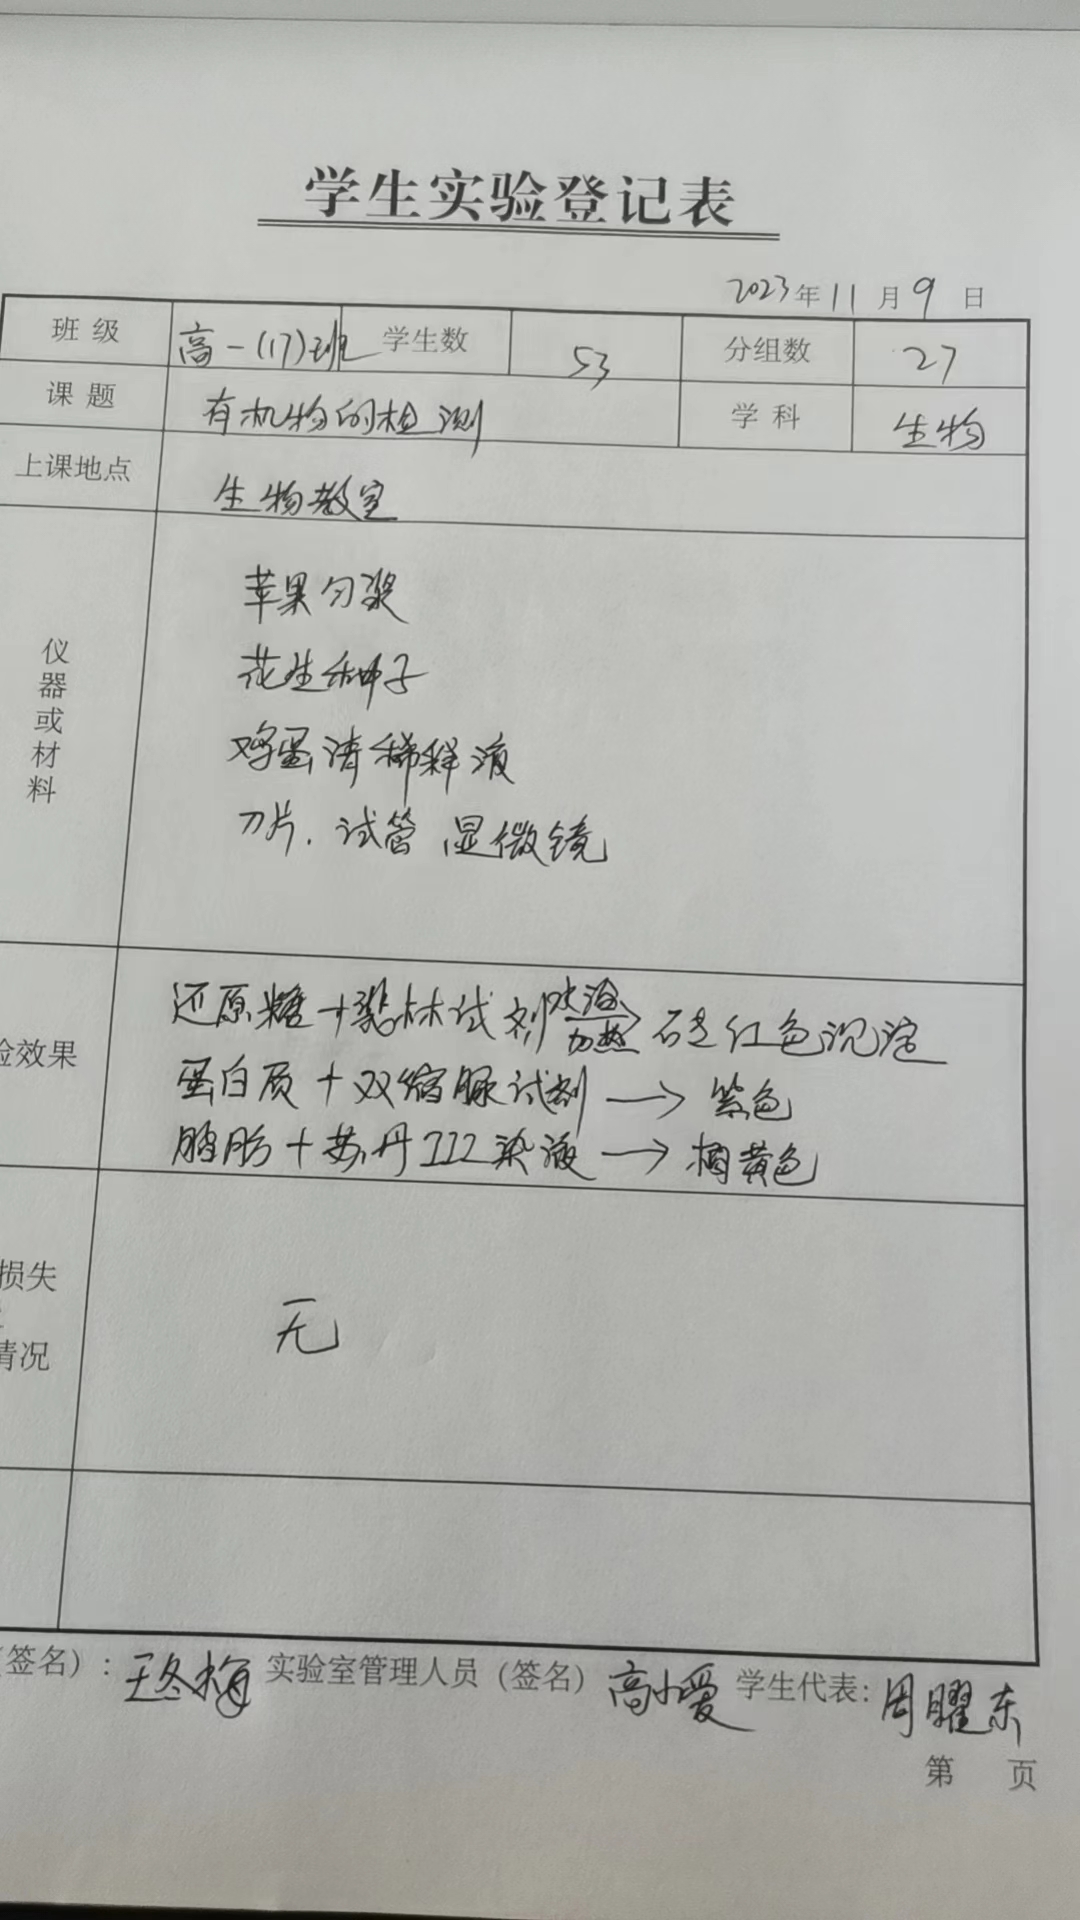 学生实验登记表
2023年11月9日
班级 高一(17)班 学生数 53 分组数 27
课题 有机物的检测 学科 生物
上课地点 生物教室
仪器或材料
苹果匀浆
花生种子
鸡蛋清稀释液
刀片.试管 显微镜
验效果
还原糖+斐林试剂 水浴加热→ 砖红色沉淀
蛋白质+双缩脲试剂→紫色
脂肪+苏丹III染液→橘黄色
损失
情况
无
(签名):王冬梅 实验室管理人员(签名)高小爱 学生代表:周曜东
第 页